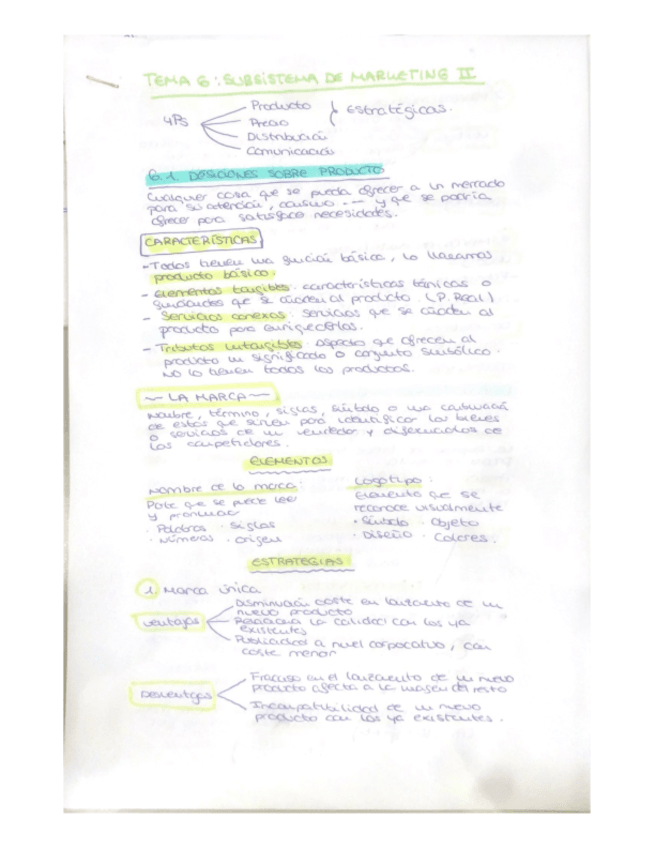 TEMA 6: SUBSISTEMA DE MARKETING II
4Ps
Producto
Precio
Distribución
Comunicación
Estratégicas.
6.1. DECISIONES SOBRE PRODUCTO
Cualquier cosa que se pueda ofrecer a un mercado
para su atención, consumo --- y que se podría
ofrecer para satisfacer necesidades.
CARACTERÍSTICAS
- Todos tienen una función básica, lo llamamos
producto básico.
- Elementos tangibles: características técnicas o
que se añaden al producto. (P. Real)
- Servicios conexos: servicios que se añaden al
producto para enriquecerlos.
- Tributos intangibles: aspectos que ofrecen al
producto un significado o conjunto simbólico.
No lo tienen todos los productos.
~ LA MARCA ~
Nombre, término, siglas, símbolo o una combinación
de estos que sirven para identificar los bienes
o servicios de un vendedor y diferenciarlos de
los competidores.
ELEMENTOS
Nombre de la marca:
Parte que se puede leer
y pronunciar
· Palabras · Siglas
· Números · Origen
Logotipo:
Elemento que se
reconoce visualmente
· Símbolo · Objeto
· Diseño · Colores.
ESTRATEGIAS
1. Marca única
Ventajas
Disminución coste en lanzamiento de un
nuevo producto
Relaciona la calidad con los ya
existentes
a nivel corporativo, con
coste menor
Desventajas
Fracaso en el lanzamiento de un nuevo
producto afecta a la imagen del resto
Incompatibilidad de un nuevo
producto con los ya existentes.